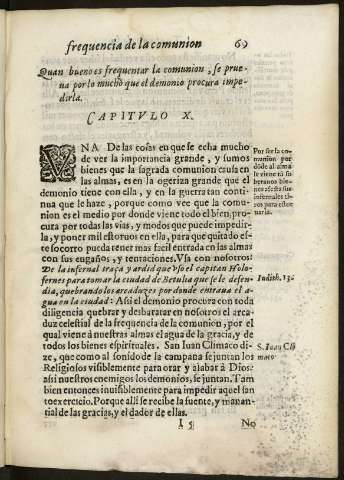 frequencia de la comunion 69
Quan bueno es frequentar la comunion, se prue-
ua por lo mucho que el demonio procura impe-
dirla.
CAPITVLO X.
VNA De las cosas en que se echa mucho
de ver la importancia grande, y sumos
bienes que la sagrada comunion causa en
las almas, es en la ogeriza grande que el
demonio tiene con ella, y en la guerra tan conti
nua que le haze, porque como vee que la comu-
nion es el medio por donde viene todo el bien, pro-
cura por todas las vias, y modos que puede impedir-
la, y poner mil estoruos en ella, para que quitado es-
te socorro pueda tener mas facil entrada en las almas
con sus engaños, y tentaciones. Vsa con nosotros:
De la infernal traça y ardid que vso el capitan Holo-
fernes para tomar la ciudad de Betulia que se le defen-
dia, quebrando los arcaduzes por donde entraua el a-
gua en la ciudad: Assi el demonio procura con toda
diligencia quebrar y desbaratar en nosotros el arca-
duz celestial de la frequencia de la comunion, por el
qual viene à nuestras almas el agua de la gracia, y de
todos los bienes espirituales. San Iuan Climaco di-
ze, que como al sonido de la campana se juntan los
Religiosos visiblemente para orar y alabar à Dios:
assi nuestros enemigos los demonios, se juntan. Tam
bien entonces inuisiblemente para impedir aquel san
to exercicio. Porque alli se recibe la fuente, y manan-
tial de las gracias, y el dador de ellas.
I 5 No
Por ser la co-
munion por
dõde al alma
le viene tã su
beranos bie-
nes asesta sus
infernales ti-
ros para estor
uarla.
Iudith. 13.
S. Iuan Cli
maco.